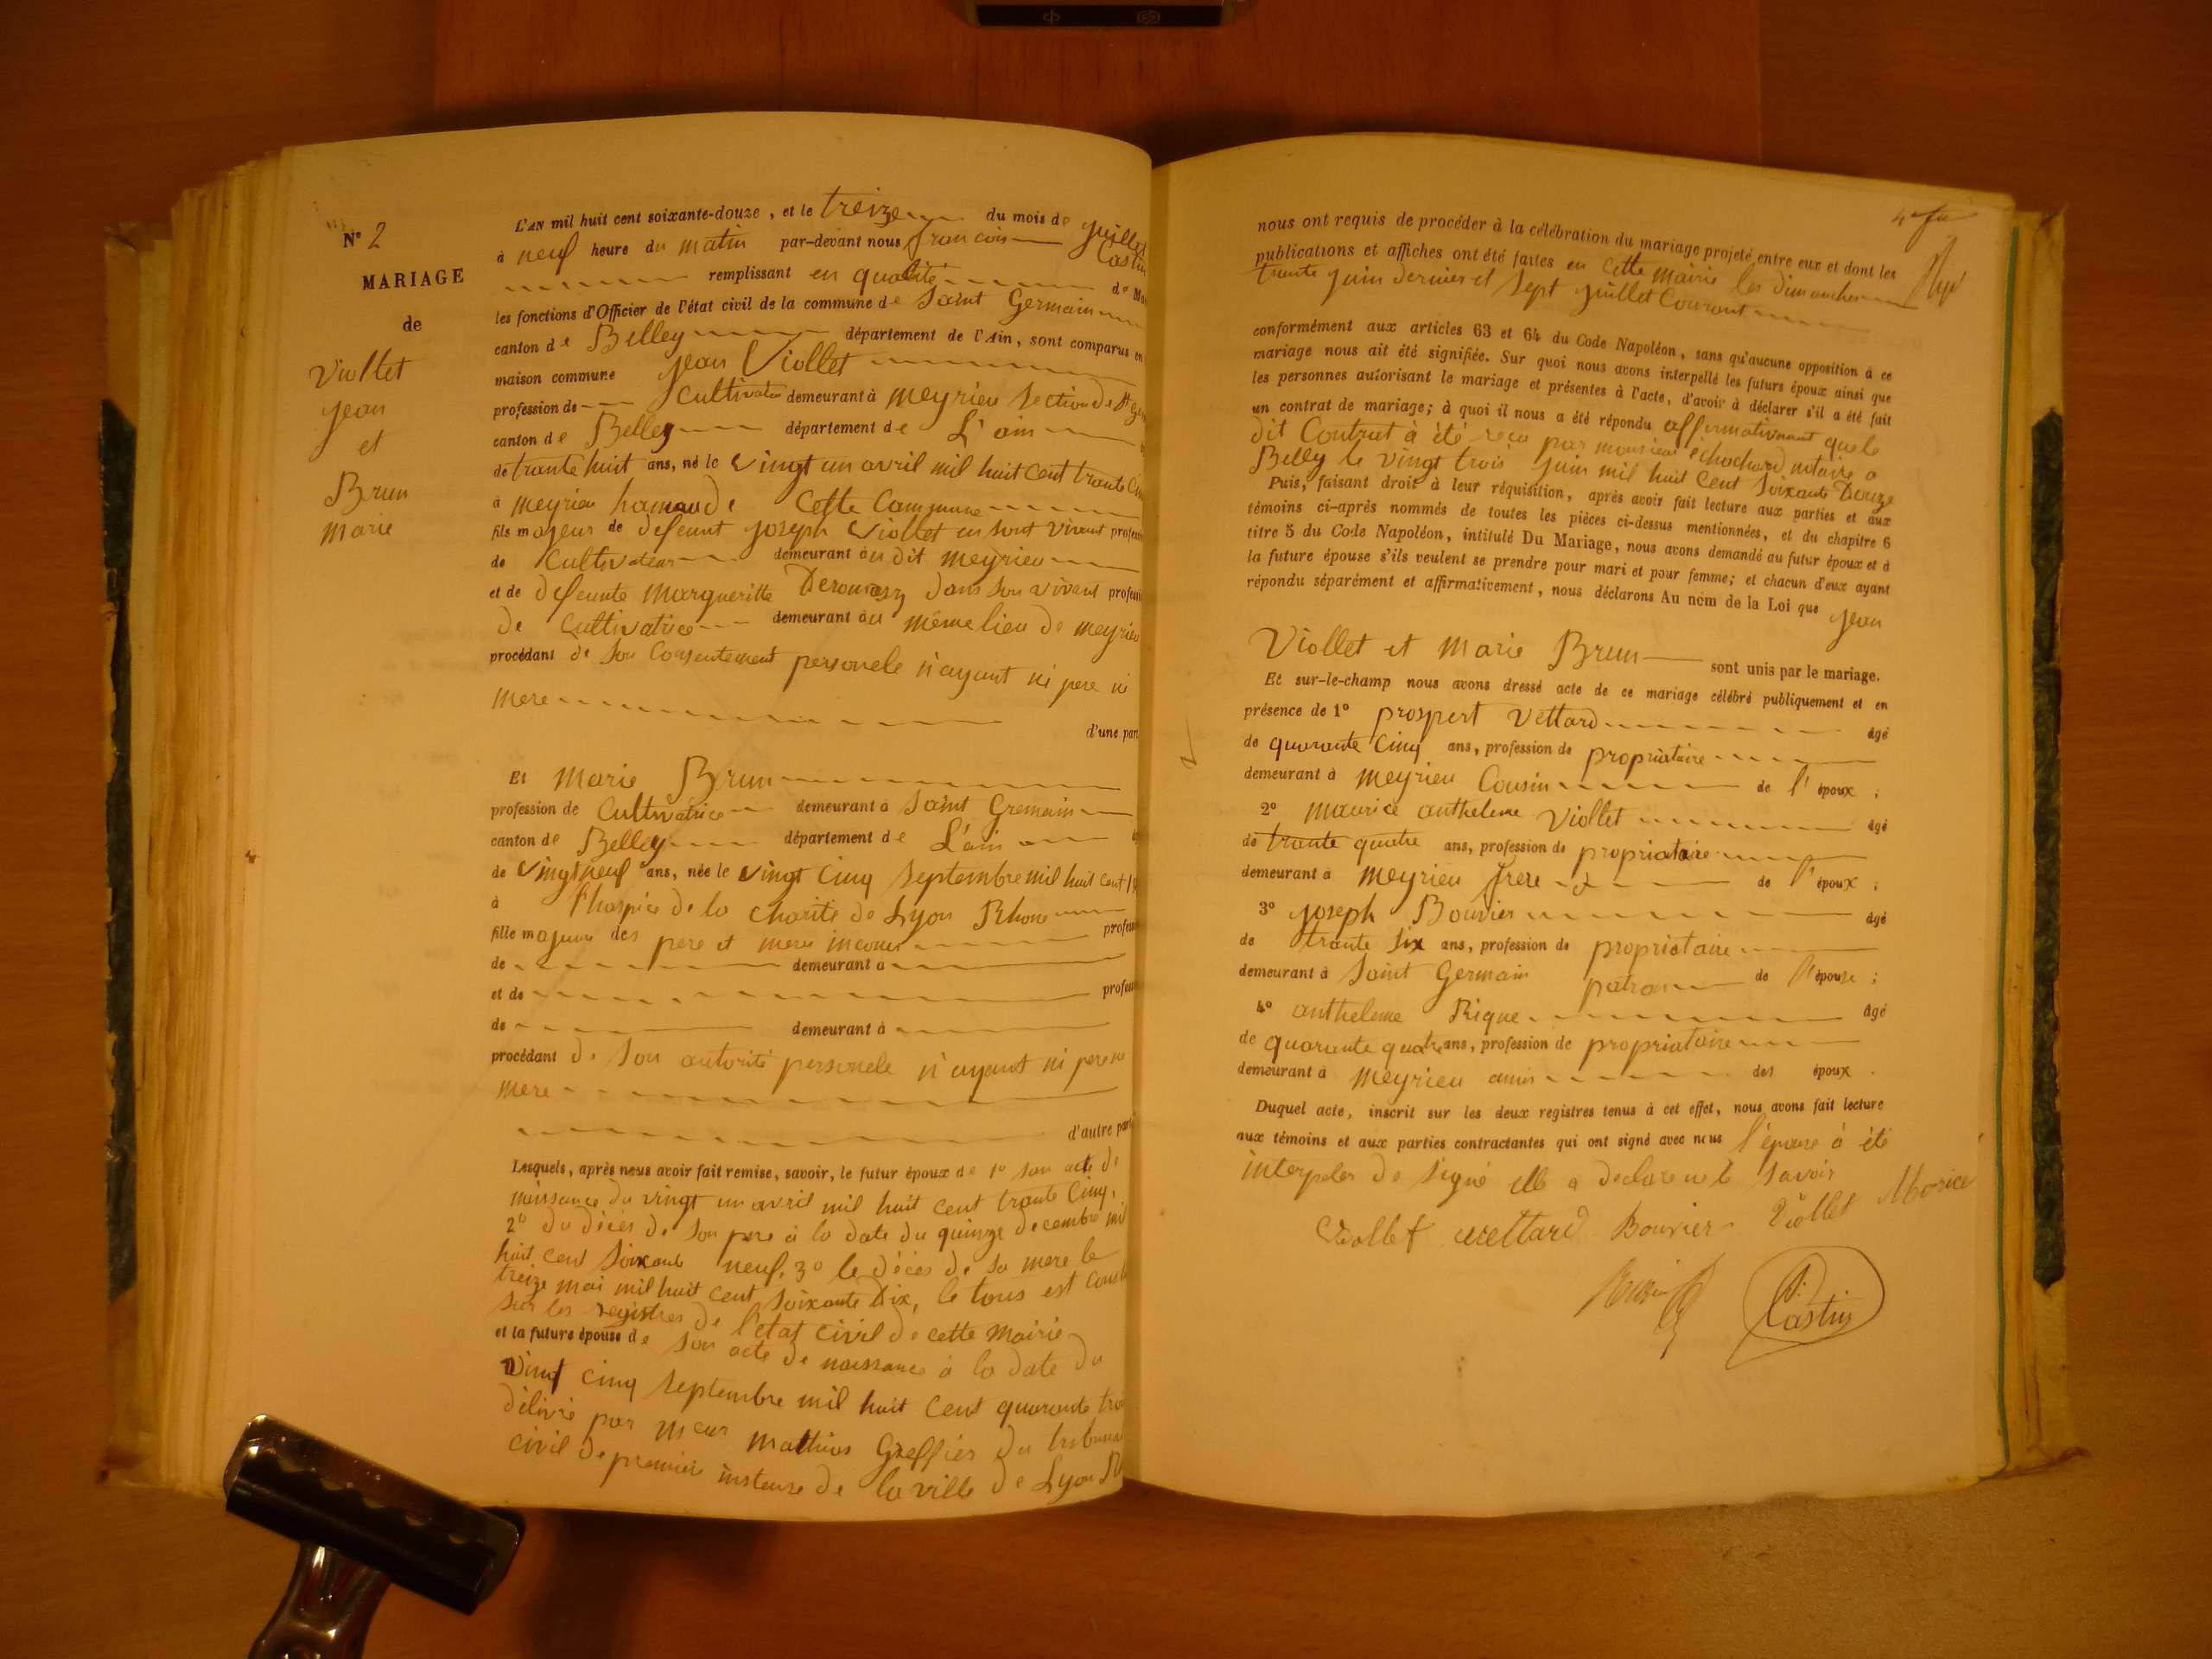 N° 2
MARIAGE
de
Viollet
Jean
et
Brun
Marie
L'AN mil huit cent soixante-douze, et le treize du mois de juillet
à neuf heure du matin par-devant nous francois Castin
remplissant en qualité de
les fonctions d'Officier de l'état civil de la commune de Saint Germain
canton de Belley département de l'Ain, sont comparus en
maison commune Jean Viollet
profession de Cultivateur demeurant à Meyrieu Section de
canton de Belley département de L'ain
de trante huit ans, né le vingt un avril mil huit cent trante
à meyrieu hamaude Cette Commune
fils majeur de defeunt Joseph Viollet en sont vivant
de Cultivateur demeurant au dit meyrieu
et de defeunte Margueritte dans son vivant
de Cultivatrice demeurant au même lieu de meyrieu
procédant de son Consentement personele n'ayant ni pere ni
mere
d'une part
Et Marie Brun
profession de Cultivatrice demeurant à Saint Gremain
canton de Belley département de L'ain
de vingt neuf ans, née le vingt Cinq Septembre mil huit cent
à l'hospice de la charité de Lyon Rhone
fille majeure des pere et mere inconus
de demeurant a
et de
de demeurant à
procédant de son autorité personele n'ayant ni pere ni
mere
d'autre part
Lesquels, après nous avoir fait remise, savoir, le futur époux de 1° son acte de
naissance du vingt un avril mil huit cent trante Cinq,
2° du décès de son pere à la date du quinze decembre mil
huit cent Soixante neuf, 3° le décès de sa mere le
treize mai mil huit cent Soixante Dix, le tous est
Sur les registres de l'état civil de cette Mairie
et la future épouse de son acte de naissance à la date du
vint cinq Septembre mil huit Cent quarante
délivré par Mathias Greffier du
civil de premiere instence de la ville de Lyon
nous ont requis de procéder à la célébration du mariage projeté entre eux et dont les
publications et affiches ont été faites en Cette mairie les dimanches
trente juin dernier et sept juillet Courant
conformément aux articles 63 et 64 du Code Napoléon, sans qu'aucune opposition à ce
mariage nous ait été signifiée. Sur quoi nous avons interpellé les futurs époux ainsi que
les personnes autorisant le mariage et présentes à l'acte, d'avoir à déclarer s'il a été fait
un contrat de mariage; à quoi il nous a été répondu affirmativement quele
dit Contrat à été reçu par monsieur notaire a
Belly le vingt trois juin mil huit Cent Soixante Douze
Puis, faisant droit à leur réquisition, après avoir fait lecture aux parties et aux
témoins ci-après nommés de toutes les pièces ci-dessus mentionnées, et du chapitre 6
titre 5 du Code Napoléon, intitulé Du Mariage, nous avons demandé au futur époux et à
la future épouse s'ils veulent se prendre pour mari et pour femme; et chacun d'eux ayant
répondu séparément et affirmativement, nous déclarons Au nom de la Loi que Jean
Viollet et Marie Brun sont unis par le mariage.
Et sur-le-champ nous avons dressé acte de ce mariage célébré publiquement et en
présence de 1° prospert Vettard âgé
de quarante Cinq ans, profession de propriataire
demeurant à Meyrieu Cousin de l'époux ;
2° Maurice anthelme Viollet âgé
de trante quatre ans, profession de propriataire
demeurant à Meyrieu frere de l'époux ;
3° Joseph Bouvier âgé
de trante six ans, profession de propriataire
demeurant à Saint Germain patron de l'épouse ;
4° anthelme Rique âgé
de quarante quatre ans, profession de propriataire
demeurant à Meyrieu amis des époux .
Duquel acte, inscrit sur les deux registres tenus à cet effet, nous avons fait lecture
aux témoins et aux parties contractantes qui ont signé avec nous l'épouse à été
interpeler de signé elle a declare ne le savoir
Viollet vettard Bouvier Viollet Morice
Castin